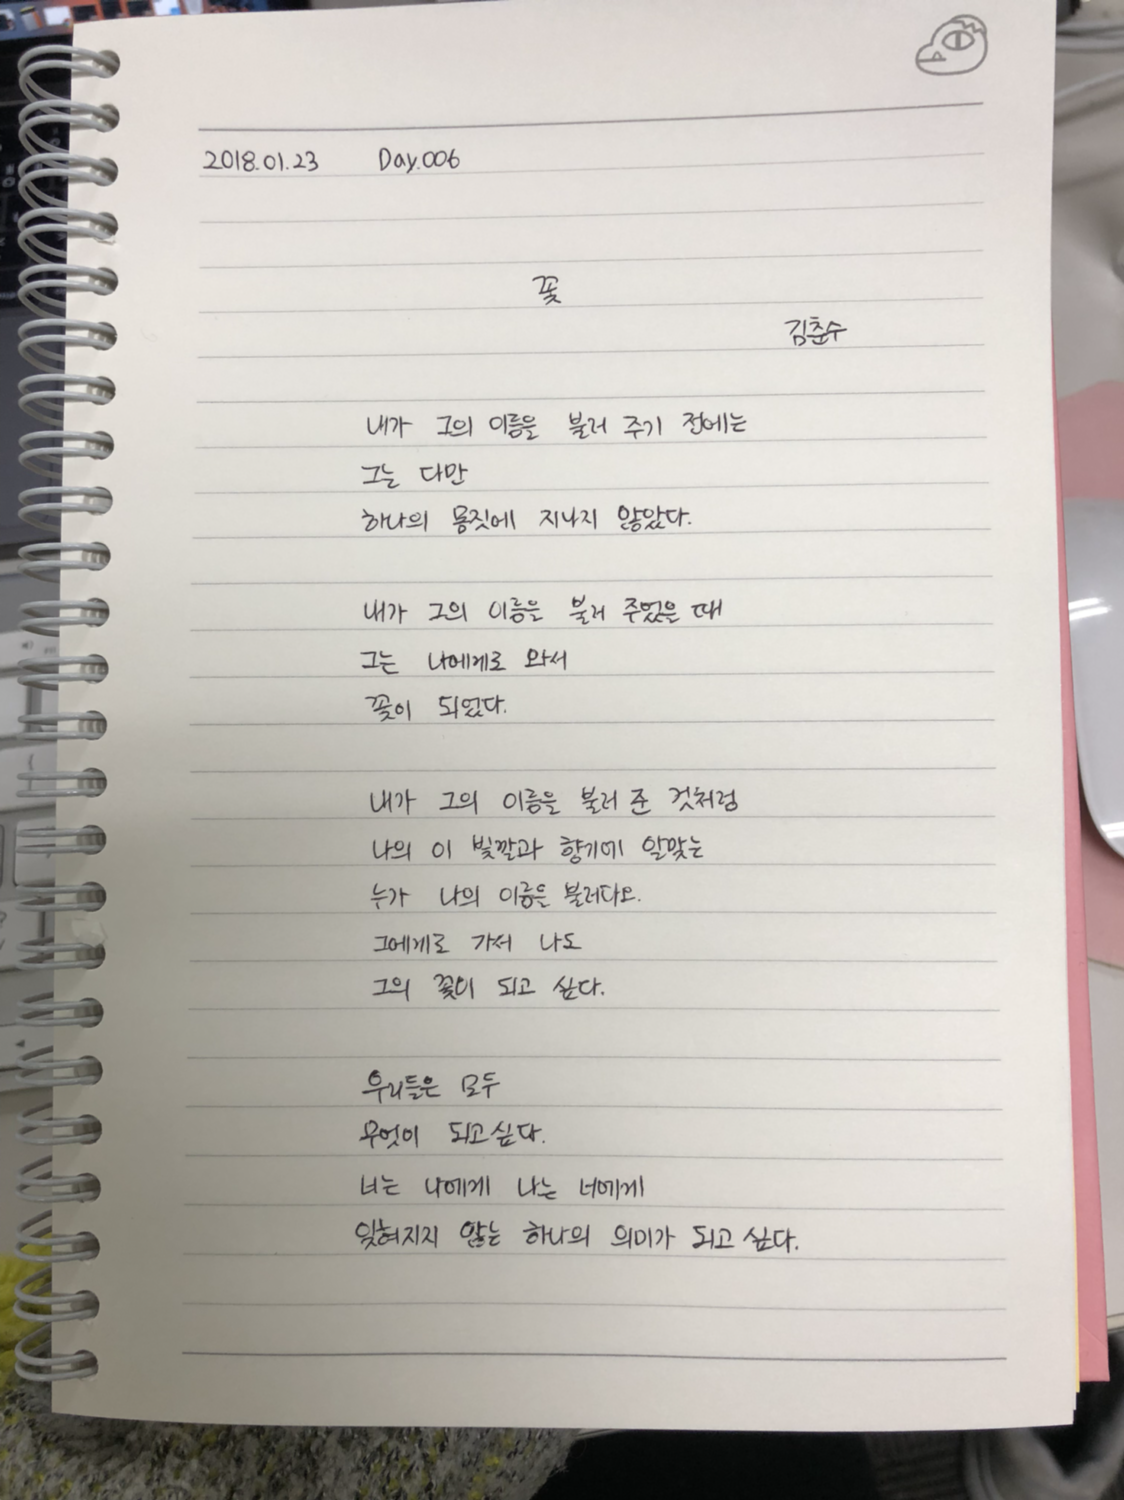 2018.01.23 Day.006
꽃
김춘수
내가 그의 이름을 불러 주기 전에는
그는 다만
하나의 몸짓에 지나지 않았다.
내가 그의 이름을 불러 주었을 때
그는 나에게로 와서
꽃이 되었다.
내가 그의 이름을 불러 준 것처럼
나의 이 빛깔과 향기에 알맞는
누가 나의 이름을 불러다오.
그에게로 가서 나도
그의 꽃이 되고 싶다.
우리들은 모두
무엇이 되고싶다.
너는 나에게 나는 너에게
잊혀지지 않는 하나의 의미가 되고싶다.